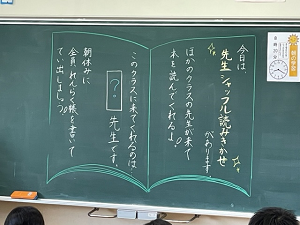 今日は
先生シャッフル読みきかせ
があります。
ほかのクラスの先生が来て
本を読んでくれるよ♪
このクラスに来てくれるのは、
? 先生です。
朝休みに
全員れんらく帳を書いて
てい出しましょう。